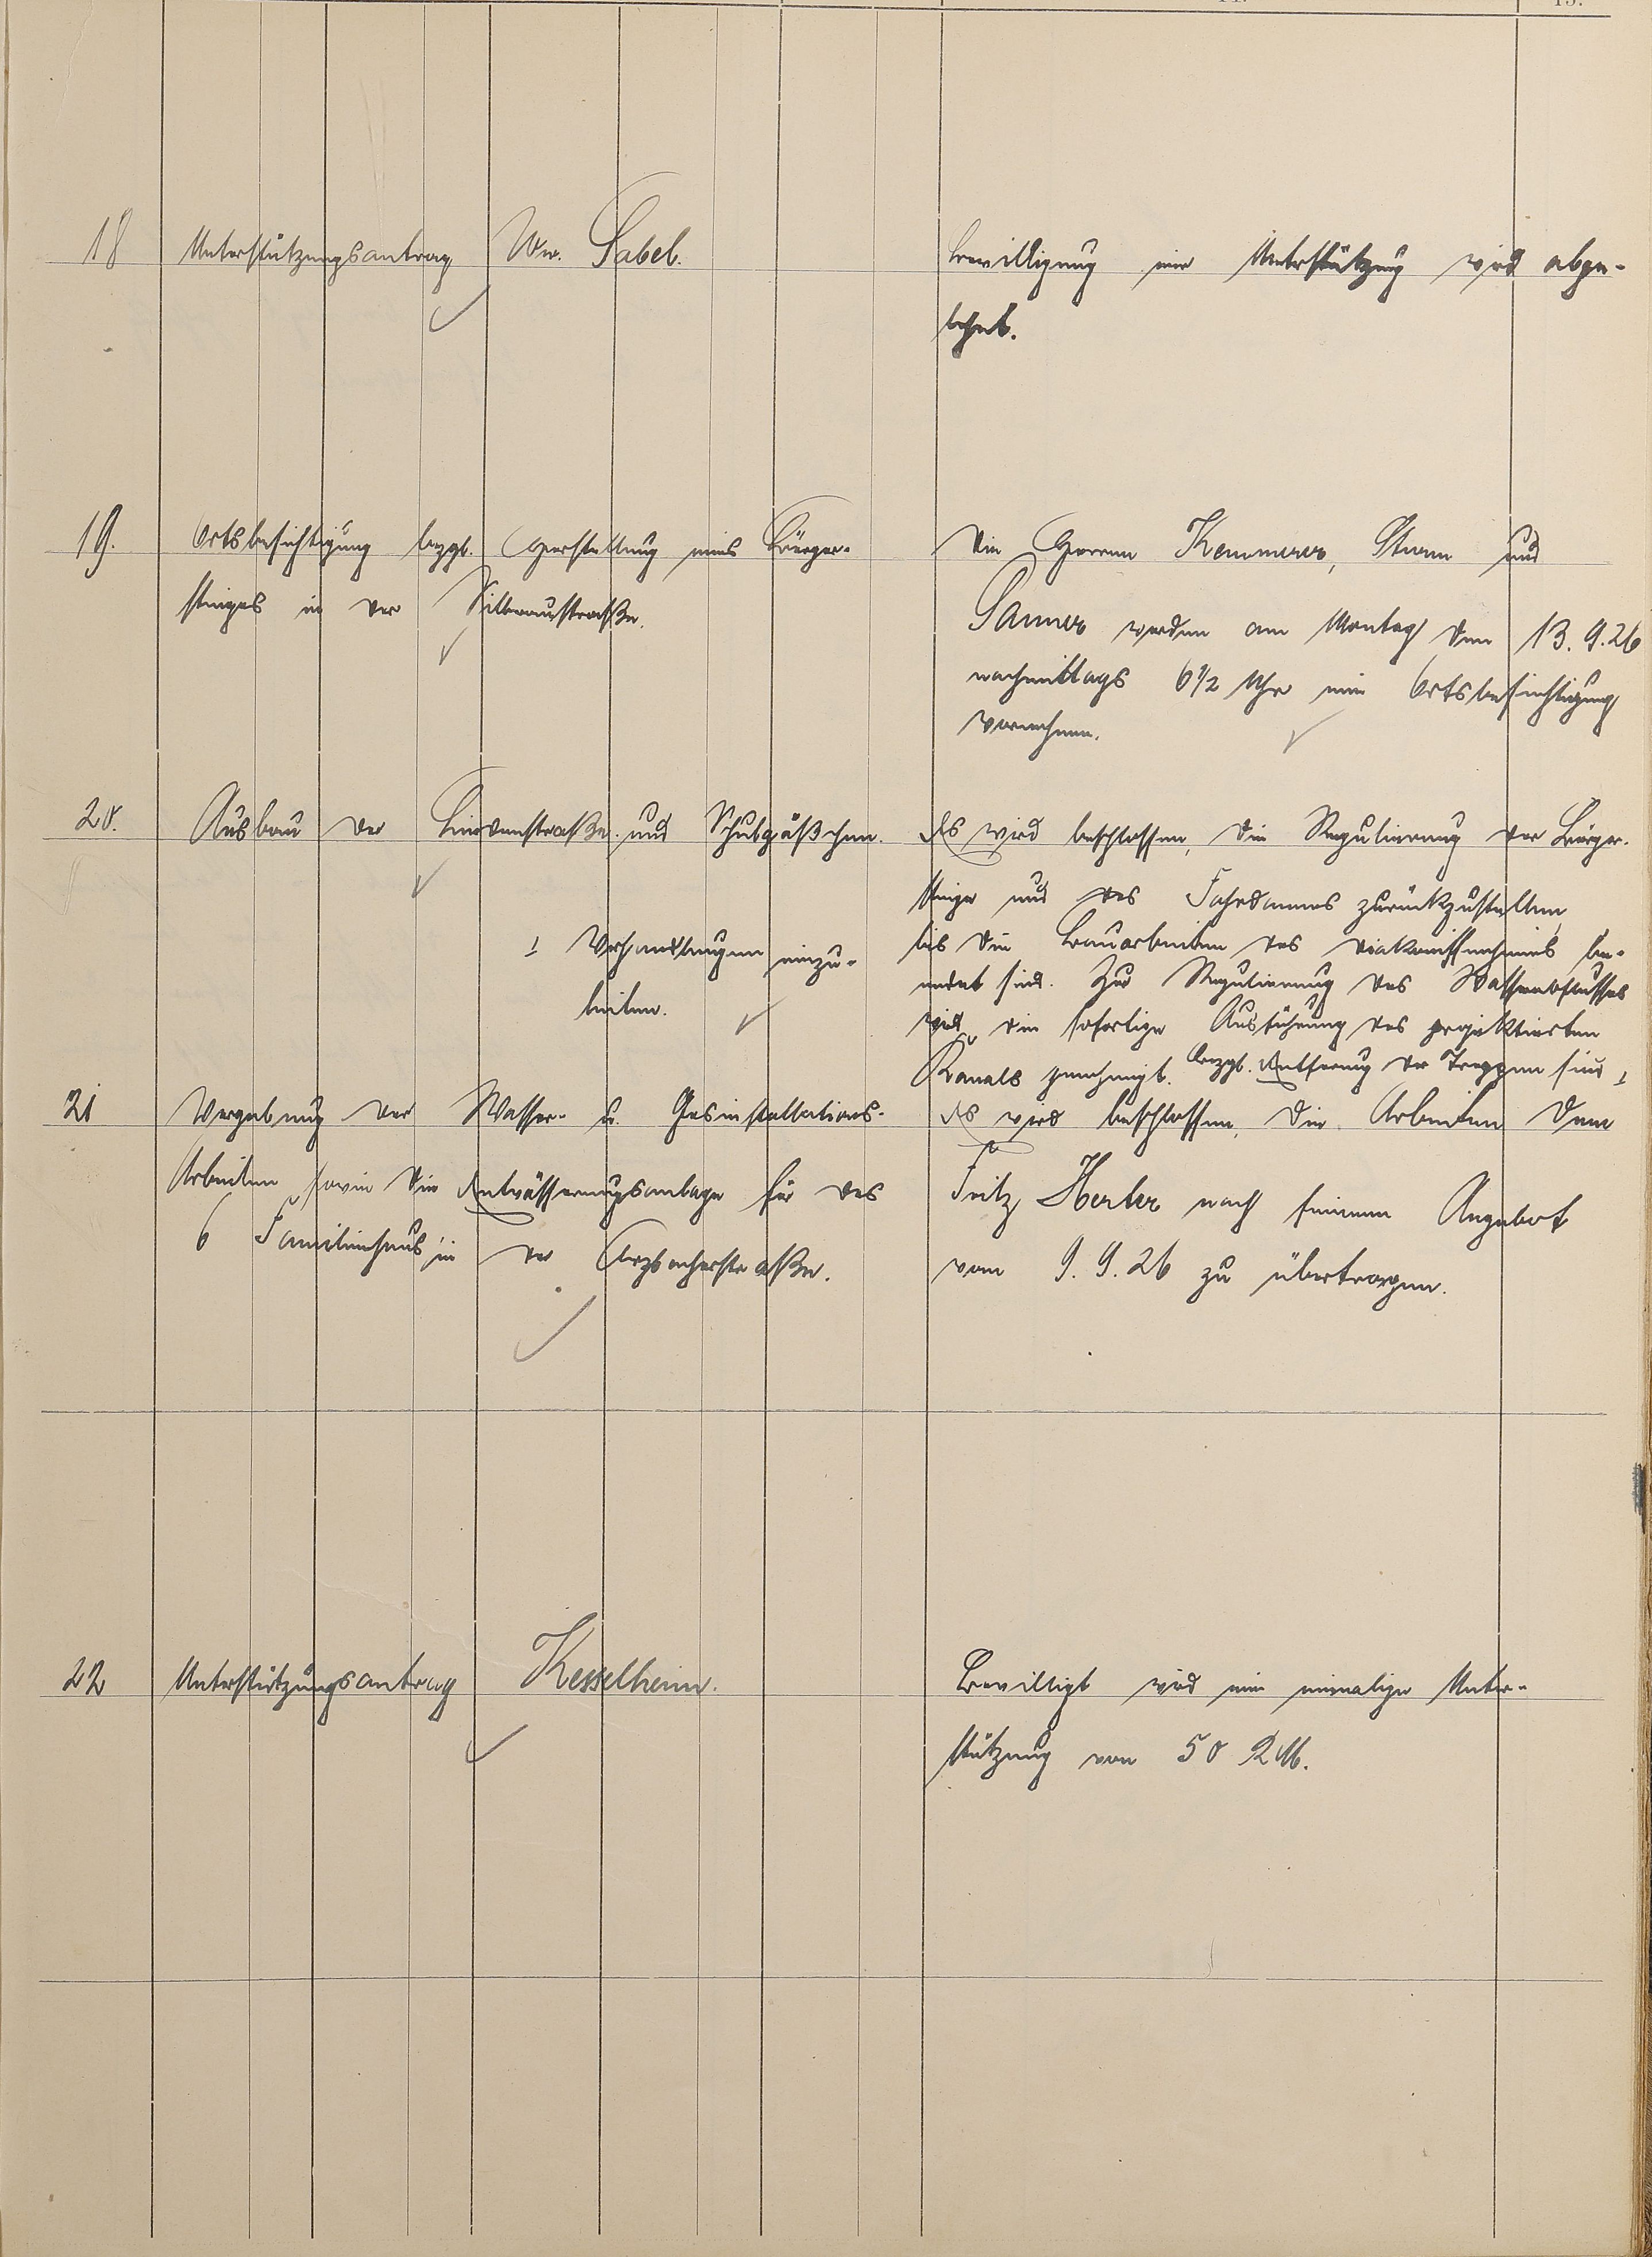 18 Unterstützungsantrag Ww. Sabel.
Bewilligung einer Unterstützung wird abge-
lehnt.
19. Ortsbesichtigung bezgl. Herstellung eines Bürger-
steiges in der Silberaustraße.
Die Herren Kemmerer, Sturm und
Sauner werden am Montag den 13.9.26
nachmittags 6 1/2 Uhr eine Ortsbesichtigung
vornehmen.
20. Ausbau der Lindenstraße und Schulgäßchen.
Es wird beschlossen, die Regulierung der Bürger-
steige und des Fahrdammes zurückzustellen,
bis die Bauarbeiten des Diakonissenheims be-
endet sind. Zur Regulierung des Wasserabflusses
wird die sofortige Ausführung des projektierten
Kanals genehmigt. Bezgl. Entfernung der Treppen sind
Verhandlungen einzu-
leiten.
21 Vergebung der Wasser- u. Gasinstallations-
Arbeiten sowie die Entwässerungsanlage für das
6 Familienhaus in der Arzbacherstraße.
Es wird beschlossen, die Arbeiten dem
Fritz Herler nach seinem Angebot
vom 9.9.26 zu übertragen.
22 Unterstützungsantrag Kesselheim.
Bewilligt wird eine einmalige Unter-
stützung von 50 RM.